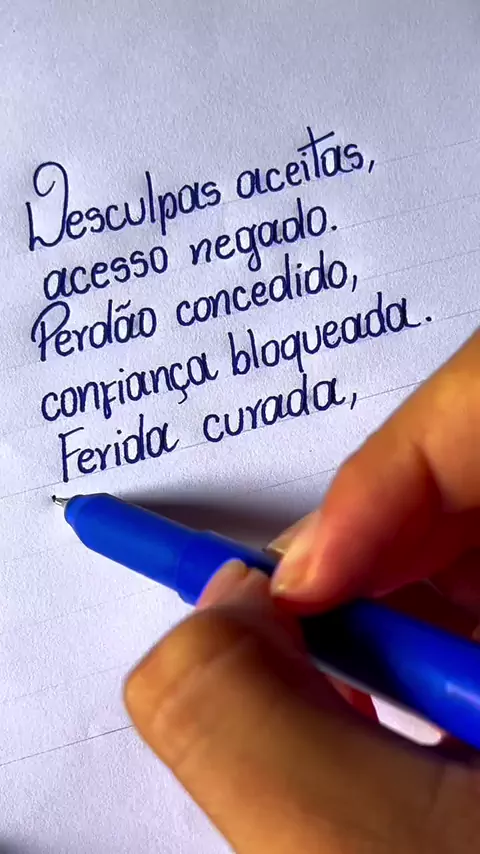 Desculpas aceitas,
acesso negado.
Perdão concedido,
confiança bloqueada.
Ferida curada,